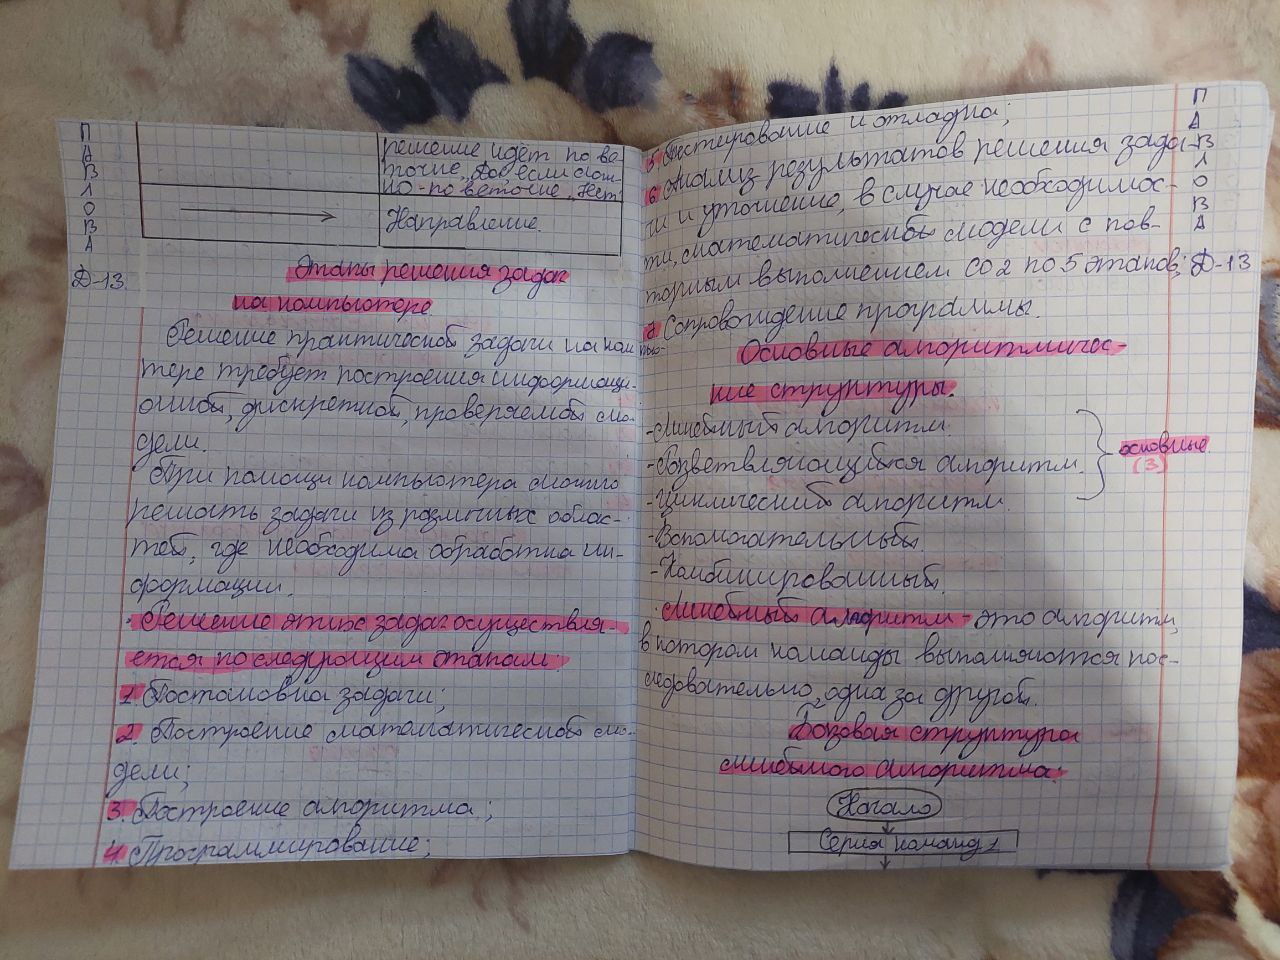 П
А
В
Л
О
В
А
Д-13
решение идёт по ве
точке „Да", если лож-
но - по веточке „Нет".
Направление.
Этапы решения задач
на компьютере
Решение практической задачи на компью-
тере требует построения информаци-
онной, дискретной, проверяемой мо-
дели.
При помощи компьютера можно
решать задачи из различных облас-
тей, где необходима обработка ин-
формации.
Решение этих задач осуществля-
ется по следующим этапам:
1. Постановка задачи;
2. Построение математической мо-
дели;
3. Построение алгоритма;
4. Программирование;
5. Тестирование и отладка;
6. Анализ результатов решения зада-
чи и уточнение, в случае необходимос-
ти, математической модели с пов-
торным выполнением со 2 по 5 этапов;
7. Сопровождение программы.
Основные алгоритмичес-
кие структуры.
-Линейный алгоритм.
-Разветвляющийся алгоритм.
-Циклический алгоритм.
основные
(3)
-Вспомогательный.
-Комбинированный.
·Линейный алгоритм - это алгоритм,
в котором команды выполняются пос-
ледовательно, одна за другой.
Базовая структура
линейного алгоритма:
Начало
Серия команд 1
П
А
В
Л
О
В
А
Д-13